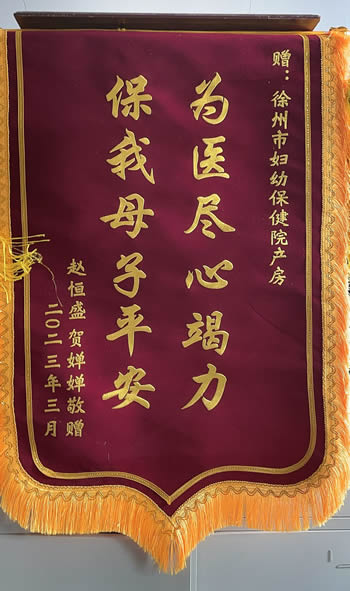 赠：徐州市妇幼保健院产房
为医尽心竭力
保我母子平安
赵恒盛 贺婵婵敬赠
二〇二三年三月